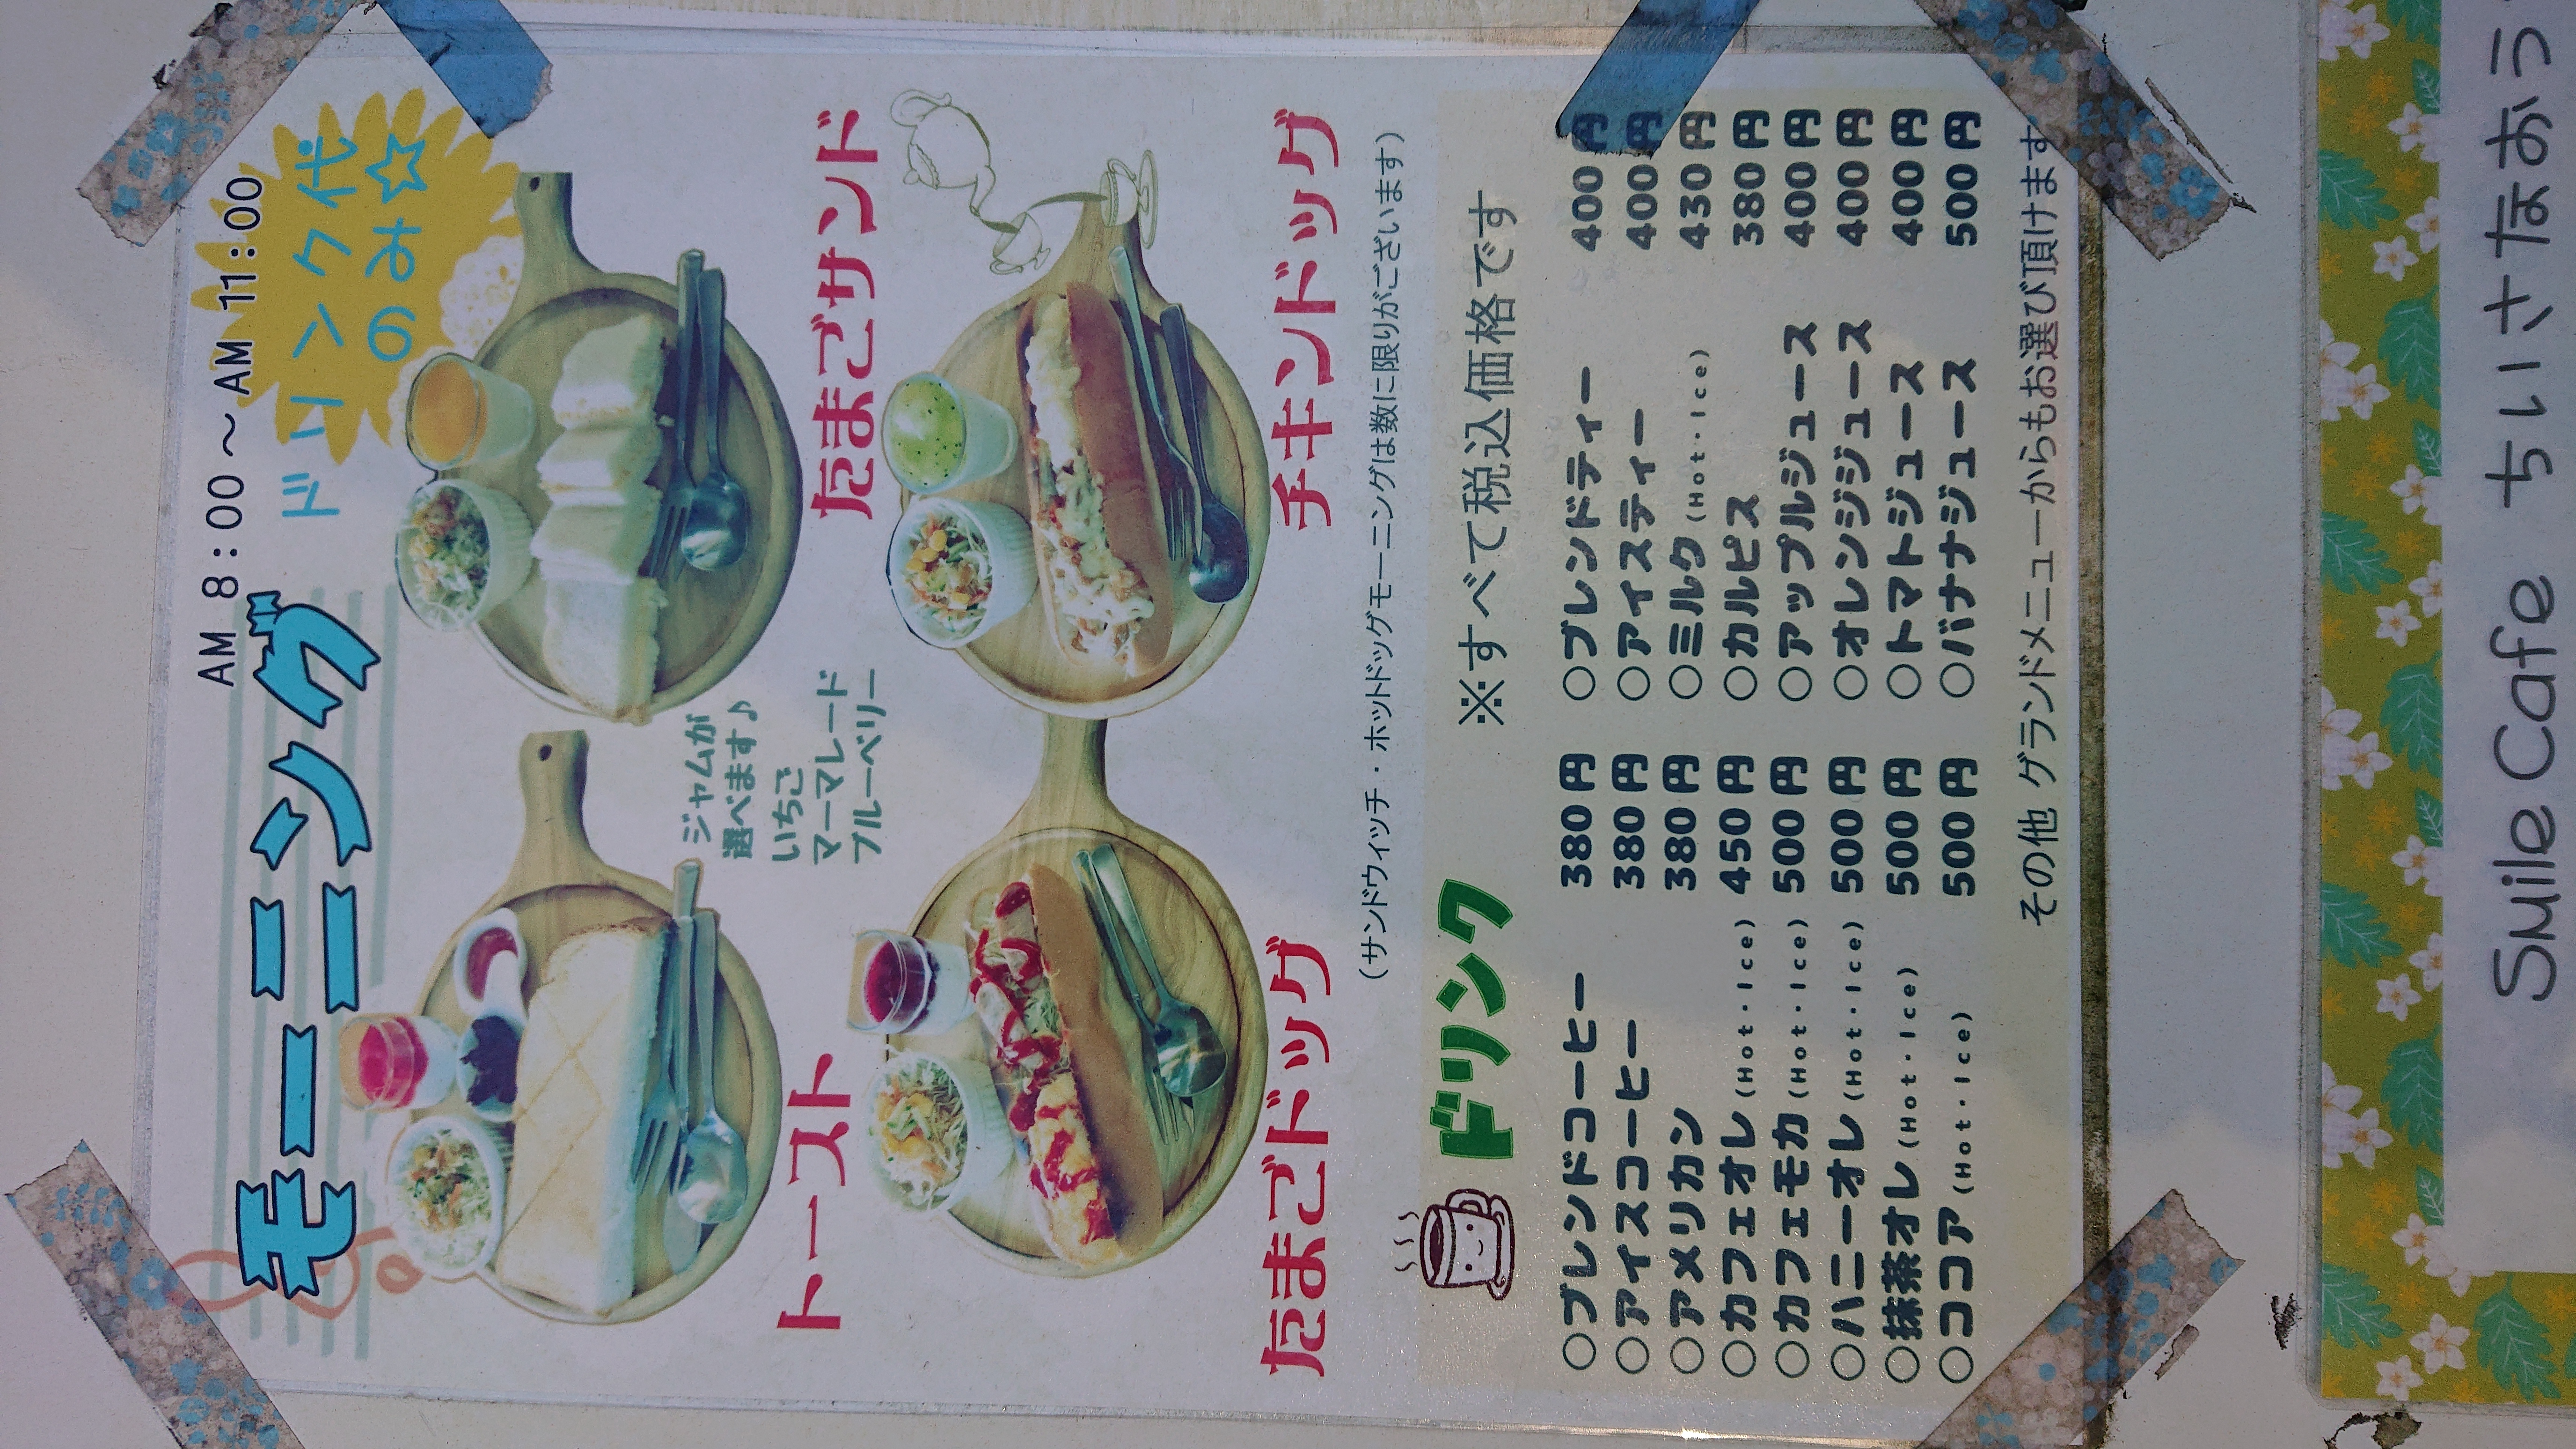 モーニング
AM 8:00～AM 11:00
ドリンク代
のみ☆
トースト
ジャムが
選べます♪
いちご
マーマレード
ブルーベリー
たまごサンド
たまごドッグ
チキンドッグ
(サンドウィッチ・ホットドッグモーニングは数に限りがございます)
ドリンク
※すべて税込価格です
○ブレンドコーヒー 380円
○アイスコーヒー 380円
○アメリカン 380円
○カフェオレ(Hot・Ice) 450円
○カフェモカ(Hot・Ice) 500円
○ハニーオレ(Hot・Ice) 500円
○抹茶オレ(Hot・Ice) 500円
○ココア(Hot・Ice) 500円
○ブレンドティー 400円
○アイスティー 400円
○ミルク(Hot・Ice) 430円
○カルピス 380円
○アップルジュース 400円
○オレンジジュース 400円
○トマトジュース 400円
○バナナジュース 500円
その他 グランドメニューからもお選び頂けます
Smile Cafe ちいさなおう